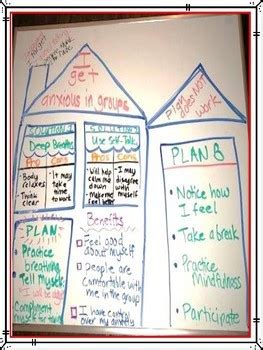 I
get
anxious in groups
Plan does NOT
work
SOLUTION 1
Deep Breaths
Pros Cons
• Body
relaxes
• Think
clear
• It may
take
time
to work
SOLUTION 2
Use Self-Talk
Pros Cons
• Will
help
calm me
down
• Make me
feel better
• I may
disagree
with
myself
PLAN
• Practice
breathing
• Tell myself
I will be okay
• Compliment
myself
Benefits
• Feel good
about
myself
• People are
comfortable with
me in the group
• I have control
over my anxiety
PLAN B
• Notice how
I feel
• Take a break
• Practice
Mindfulness
• Participate